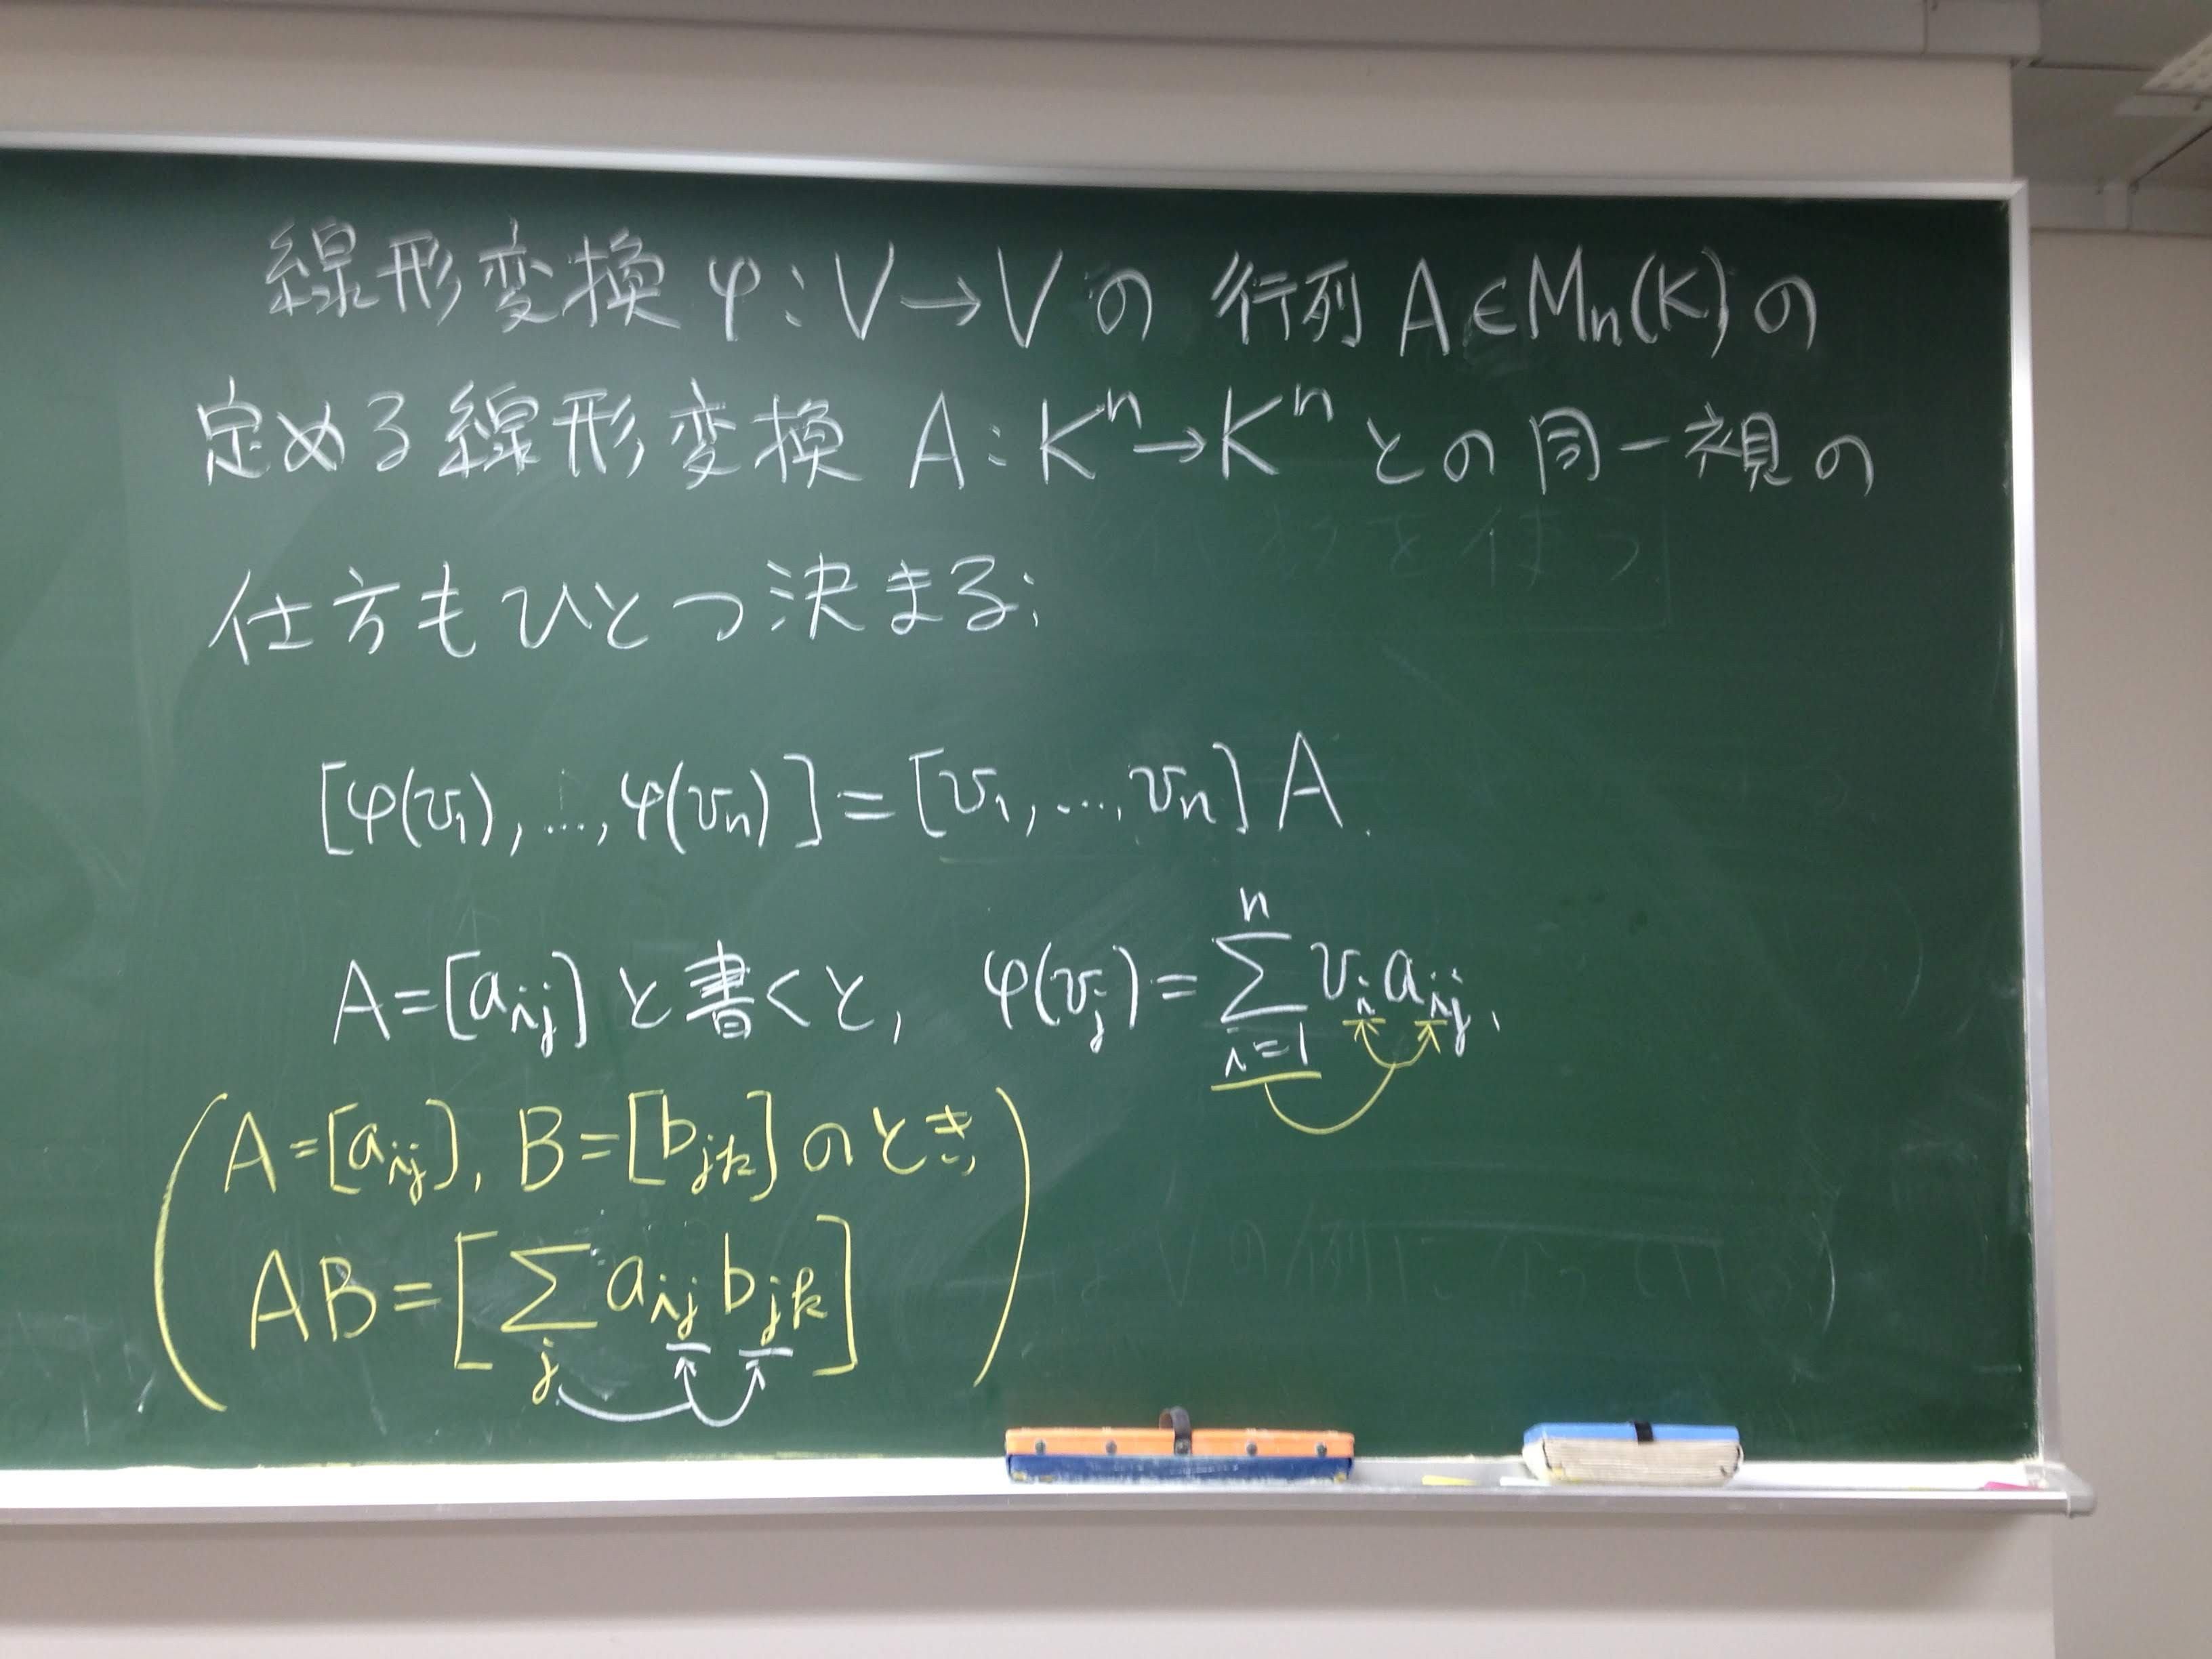 線形変換 φ: V→V の 行列 A∈Mn(K) の
定める線形変換 A: Kⁿ→Kⁿ との同一視の
仕方もひとつ決まる;
[φ(v₁), ..., φ(vn)] = [v₁, ..., vn] A.
A=[aij] と書くと, φ(vj) = ∑ⁿᵢ₌₁ vi aij.
(A=[aij], B=[bjk] のとき,
AB = [∑j aij bjk])